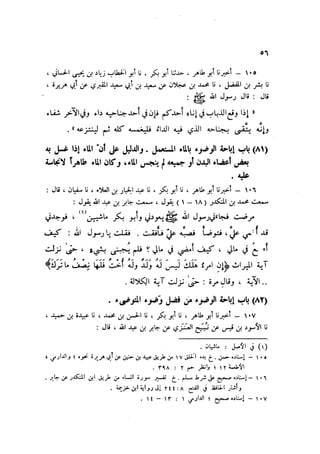 ٥٦
١٠٥ – أخبرنا أبو طاهر ، حدثنا أبو بكر ، نا أبو الخطاب زياد بن يحيى الحساني ،
نا بشر بن المفضل ، نا محمد بن عجلان عن سعيد بن أبي سعيد المقبري عن أبي هريرة ،
قال : قال رسول الله ﷺ :
« إذا وقع الذباب في إناء أحدكم فإن في أحد جناحيه داء وفي الآخر شفاء
وإنه يتقي بجناحه الذي فيه الداء فليغمسه كله ثم لينتزعه » .
(٨١) باب إباحة الوضوء بالماء المستعمل . والدليل على أن الماء إذا غسل به
بعض أعضاء البدن أو جميعه لم ينجس الماء ، وكان الماء طاهراً لا نجاسة
عليه .
١٠٦ – أخبرنا أبو طاهر ، نا أبو بكر ، نا عبد الجبار بن العلاء ، نا سفيان ، قال :
سمعت محمد بن المنكدر (١٨ – ١) يقول ، سمعت جابر بن عبد الله يقول :
مرضت فجاءني رسول الله ﷺ يعودني وأبو بكر ماشيين (١) ، فوجدني
قد أغمي عليّ ، فتوضأ فصبه عليّ فأفقت . فقلت يا رسول الله : كيف
أصنع في مالي ، كيف أمضي في مالي ؟ فلم يجبني بشيء ، حتى نزلت
آية الميراث ﴿إن امرؤ هلك ليس له ولد وله أخت فلها نصف ما ترك﴾
.. الآية ، وقال مرة : حتى نزلت آية الكلالة .
(٨٢) باب إباحة الوضوء من فضل وضوء المتوضىء .
١٠٧ – أخبرنا أبو طاهر ، نا أبو بكر ، نا الحسن بن محمد ، نا عبيدة بن حميد ،
نا الأسود بن قيس عن نبيح العنزي عن جابر بن عبد الله ، قال :
(١) في الأصل : ماشيان .
١٠٥ – إسناده حسن . خ بدء الخلق ١٧ من طريق عبيد بن حنين عن أبي هريرة نحوه ؛ والدارمي
الأطعمة ١٢ ؛ وانظر حم ٢ : ٣٩٨ .
١٠٦ – إسناده صحيح على شرط مسلم . خ تفسير سورة النساء من طريق ابن المنكدر عن جابر .
وأشار الحافظ في الفتح ٨ : ٢٤٤ إلى رواية ابن خزيمة .
١٠٧ – إسناده صحيح ؛ الدارمي ١ : ١٣ – ١٤ .